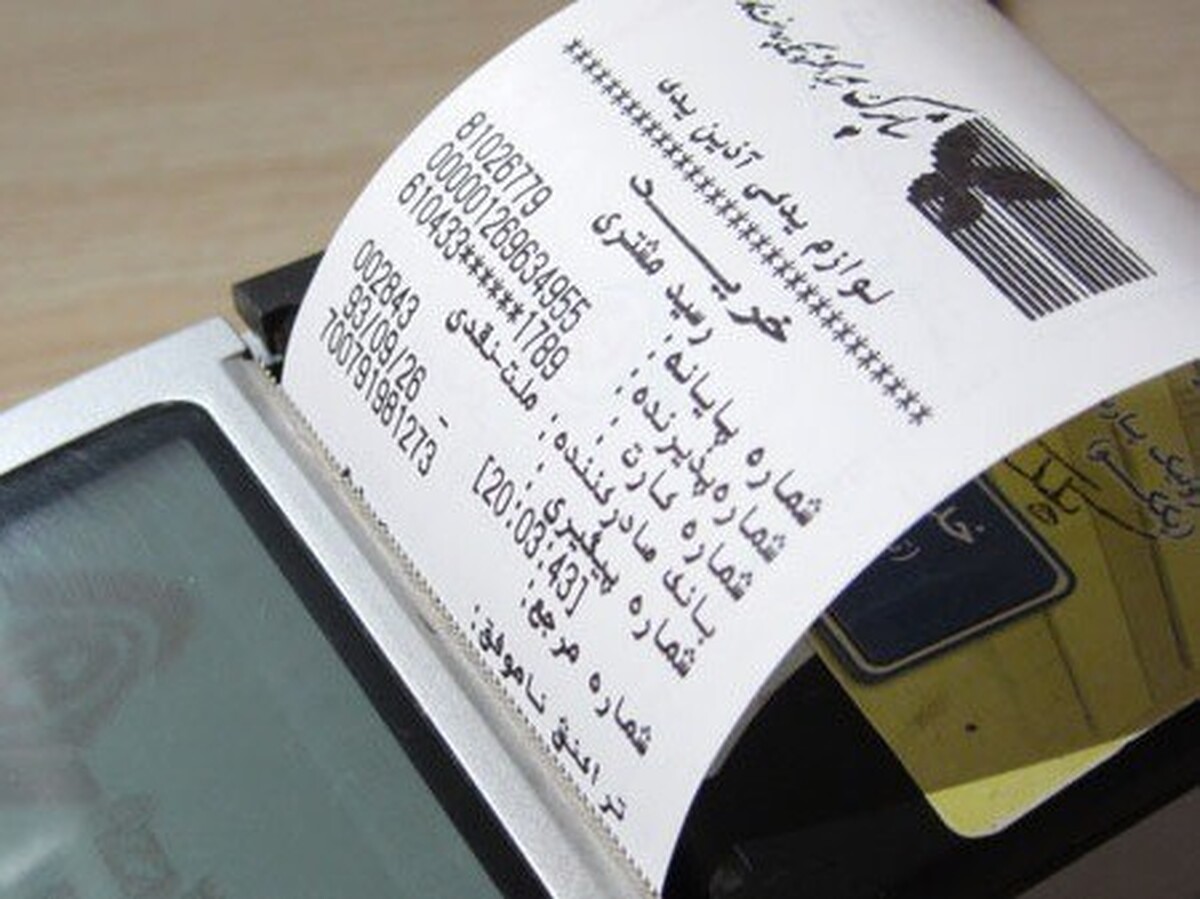 لوازم یدکی آذین یدک
**********************************
خریـــــد
رسید مشتری
شماره پایانه: 81026779
شماره پذیرنده: 000001269634955
شماره کارت: 610433******1789
بانک صادرکننده: ملت-نقدی
شماره پیگیری: 002843
93/09/26 _ [20:03:43]
شماره مرجع: 700791981273
تراکنش ناموفق: